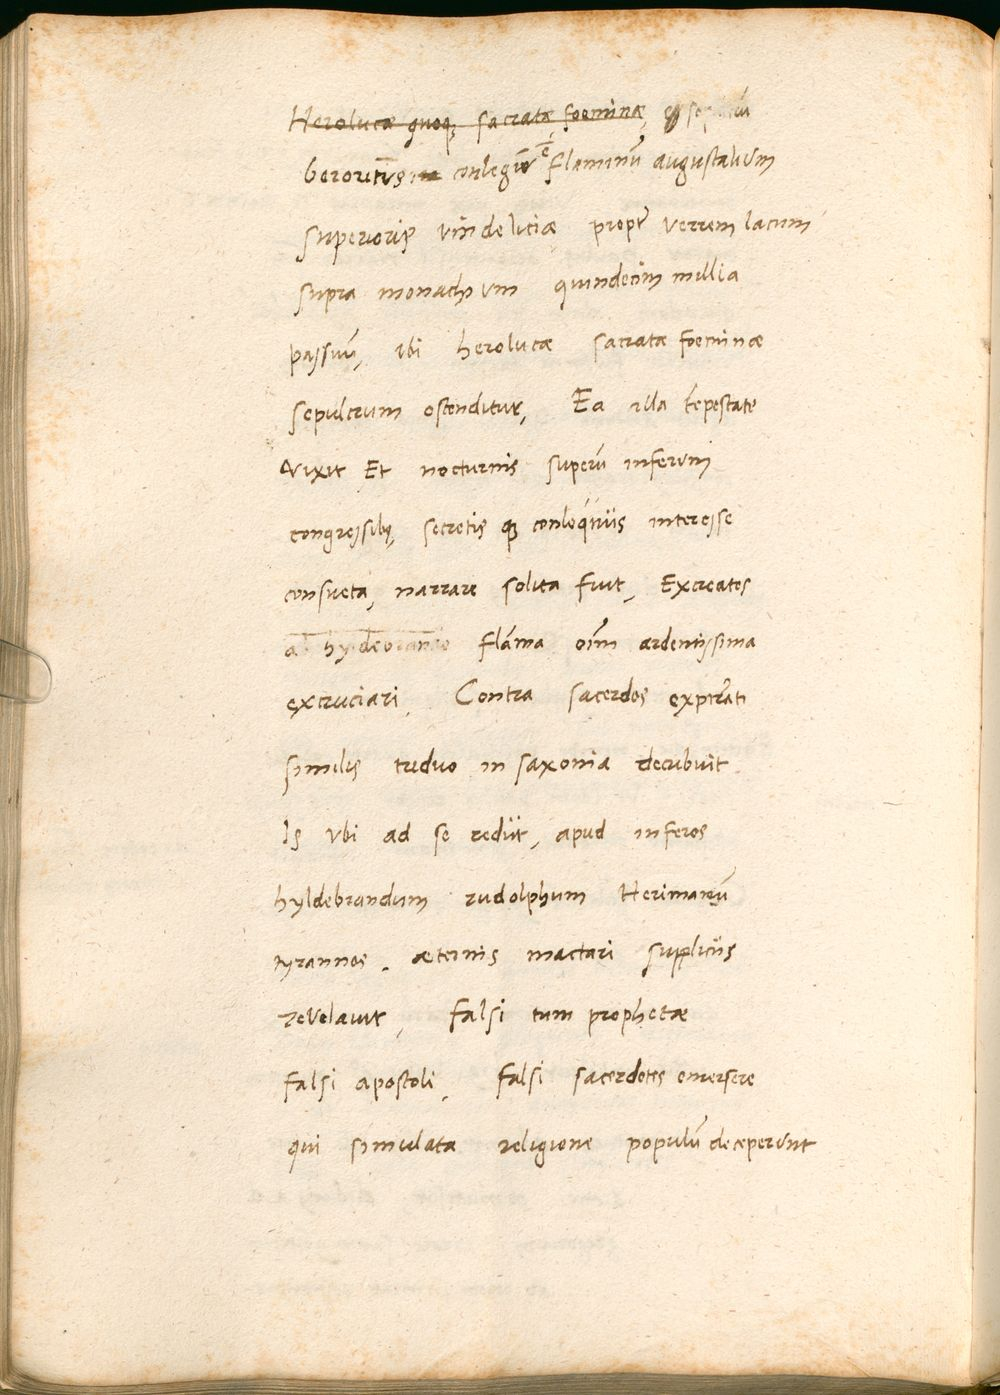 Herolucæ quoq; sacratæ foeminæ,
beroritus conlegiū ē Flaminū augustalium
superioris vindeliciæ propť verrem lacum
supra monachum quindecim millia
passuū, ibi herolucæ sacratæ foeminæ
sepulcrum ostenditur, Ea illa tēpestate
vixit Et nocturnis superū inferum
congressibꝫ, secretis qꝫ conloq́uiis interesse
consueta, narrare solita fuit, Excreates
a hyldebrando flāma oīm ardentissima
excruciari, Contra sacerdos
similis triduo in saxonia decubuit
Is vbi ad se rediit, apud inferos
hyldebrandum rudolphum Herimanū
tyrannos, æternis mactari suppliciis
revelavit, falsi tum prophetæ
falsi apostoli, falsi sacerdotes emersere
qui simulata religione populū deceperunt